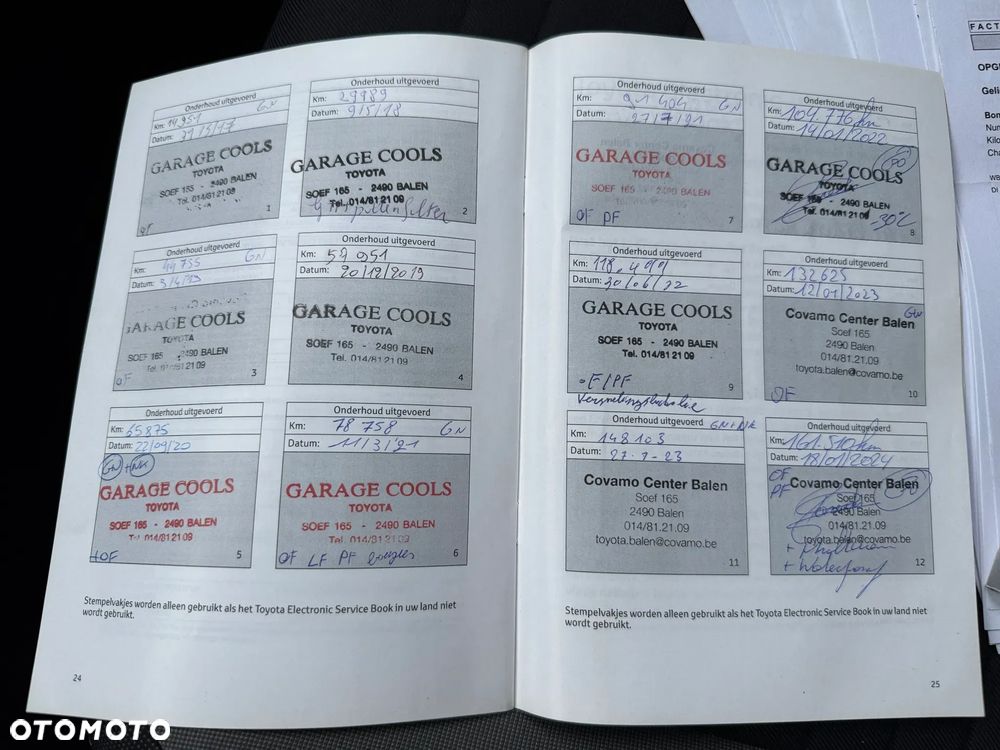 Onderhoud uitgevoerd
Km: 14951 GN
Datum:
GARAGE COOLS
TOYOTA
SOEF 165 - 2490 BALEN
Tel. 014/81 21 09
1
OF
Onderhoud uitgevoerd
Km: 29989
Datum: 9/5/18
GARAGE COOLS
TOYOTA
SOEF 165 - 2490 BALEN
Tel. 014/81 21 09
2
Onderhoud uitgevoerd
Km: 44755 GN
Datum: 3/4/19
GARAGE COOLS
TOYOTA
SOEF 165 - 2490 BALEN
Tel. 014/81 21 09
3
OF
Onderhoud uitgevoerd
Km: 54951
Datum: 20/12/2019
GARAGE COOLS
TOYOTA
SOEF 165 - 2490 BALEN
Tel. 014/81 21 09
4
Onderhoud uitgevoerd
Km: 65875
Datum: 22/09/20
GN
GARAGE COOLS
TOYOTA
SOEF 165 - 2490 BALEN
Tel. 014/81 21 09
5
+OF
Onderhoud uitgevoerd
Km: 78 758 GN
Datum: 11/3/21
GARAGE COOLS
TOYOTA
SOEF 165 - 2490 BALEN
Tel. 014/81 21 09
6
OF LF PF bougies
Stempelvakjes worden alleen gebruikt als het Toyota Electronic Service Book in uw land niet
wordt gebruikt.
24
Onderhoud uitgevoerd
Km: 91 404 GN
Datum: 27/7/21
GARAGE COOLS
TOYOTA
SOEF 165 - 2490 BALEN
Tel. 014/81 21 09
7
OF PF
Onderhoud uitgevoerd
Km: 104.776 km
Datum: 14/01/2022
GARAGE COOLS
TOYOTA
SOEF 165 - 2490 BALEN
Tel. 014/81 21 09
8
Onderhoud uitgevoerd
Km: 118.499
Datum: 30/06/22
GARAGE COOLS
TOYOTA
SOEF 165 - 2490 BALEN
Tel. 014/81 21 09
9
OF/PF
Onderhoud uitgevoerd
Km: 132625
Datum: 12/01/2023
GN
Covamo Center Balen
Soef 165
2490 Balen
014/81.21.09
toyota.balen@covamo.be
10
OF
Onderhoud uitgevoerd
Km: 148103
Datum: 27-7-23
Covamo Center Balen
Soef 165
2490 Balen
014/81.21.09
toyota.balen@covamo.be
11
Onderhoud uitgevoerd
Km: 161.510 km
Datum: 18/01/2024
OF
PF
Covamo Center Balen
Soef 165
2490 Balen
014/81.21.09
toyota.balen@covamo.be
12
Stempelvakjes worden alleen gebruikt als het Toyota Electronic Service Book in uw land niet
wordt gebruikt.
25
FACT
OPG
Geli
Bon
Num
Kilo
Cha
OTOMOTO